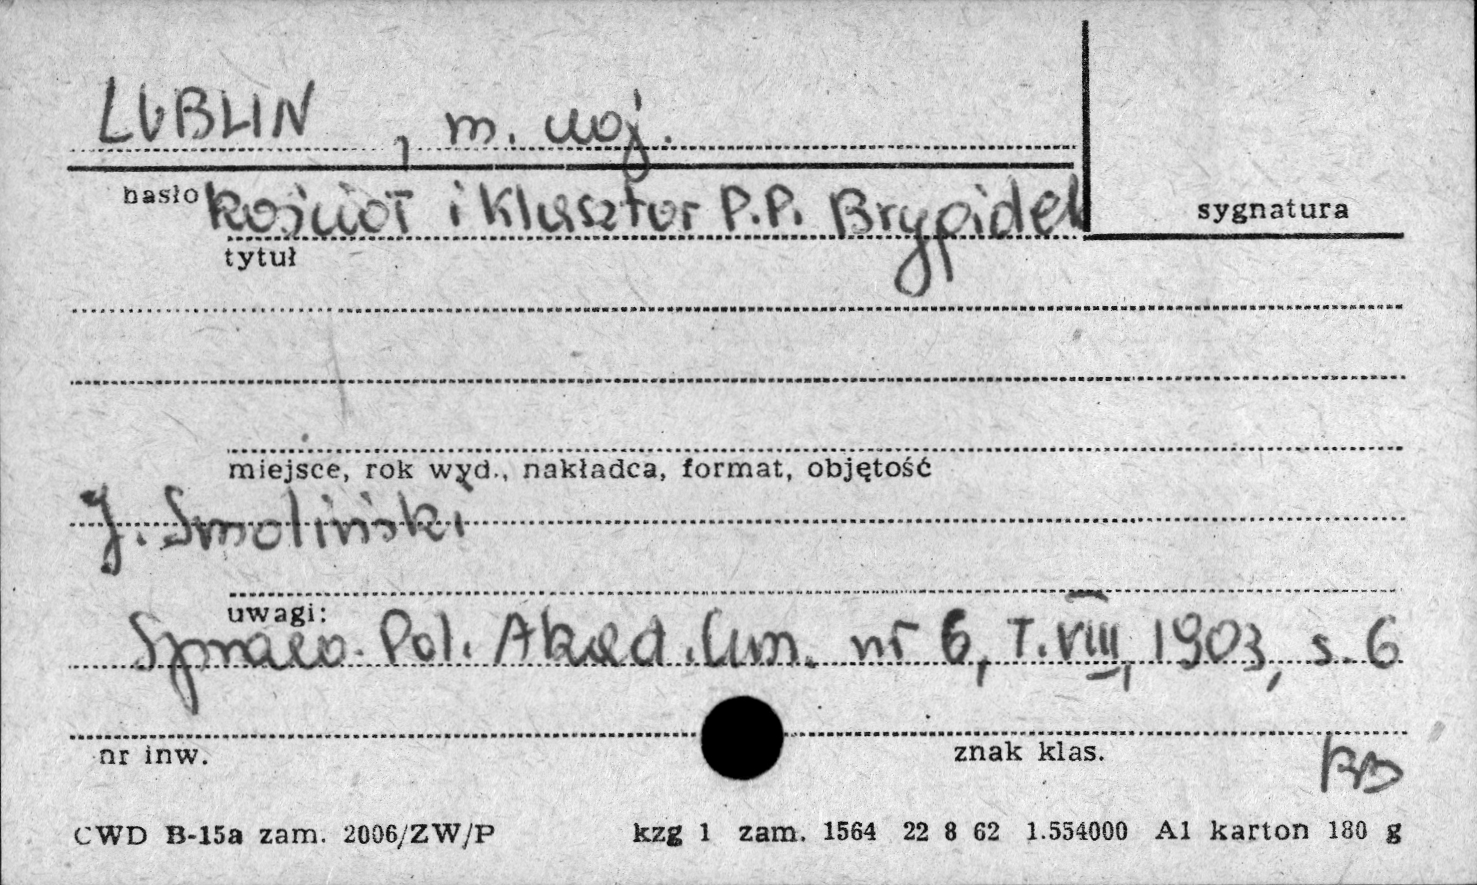 LUBLIN, m. woj.
hasło kościół i klasztor P.P. Brygidek
sygnatura
tytuł
miejsce, rok wyd., nakładca, format, objętość
J. Smoliński
uwagi:
Spraw. Pol. Akad. Um. nr 6, T. VIII, 1903, s. 6
nr inw.
znak klas.
RB
CWD B-15a zam. 2006/ZW/P kzg 1 zam. 1564 22 8 62 1.554000 A1 karton 180 g